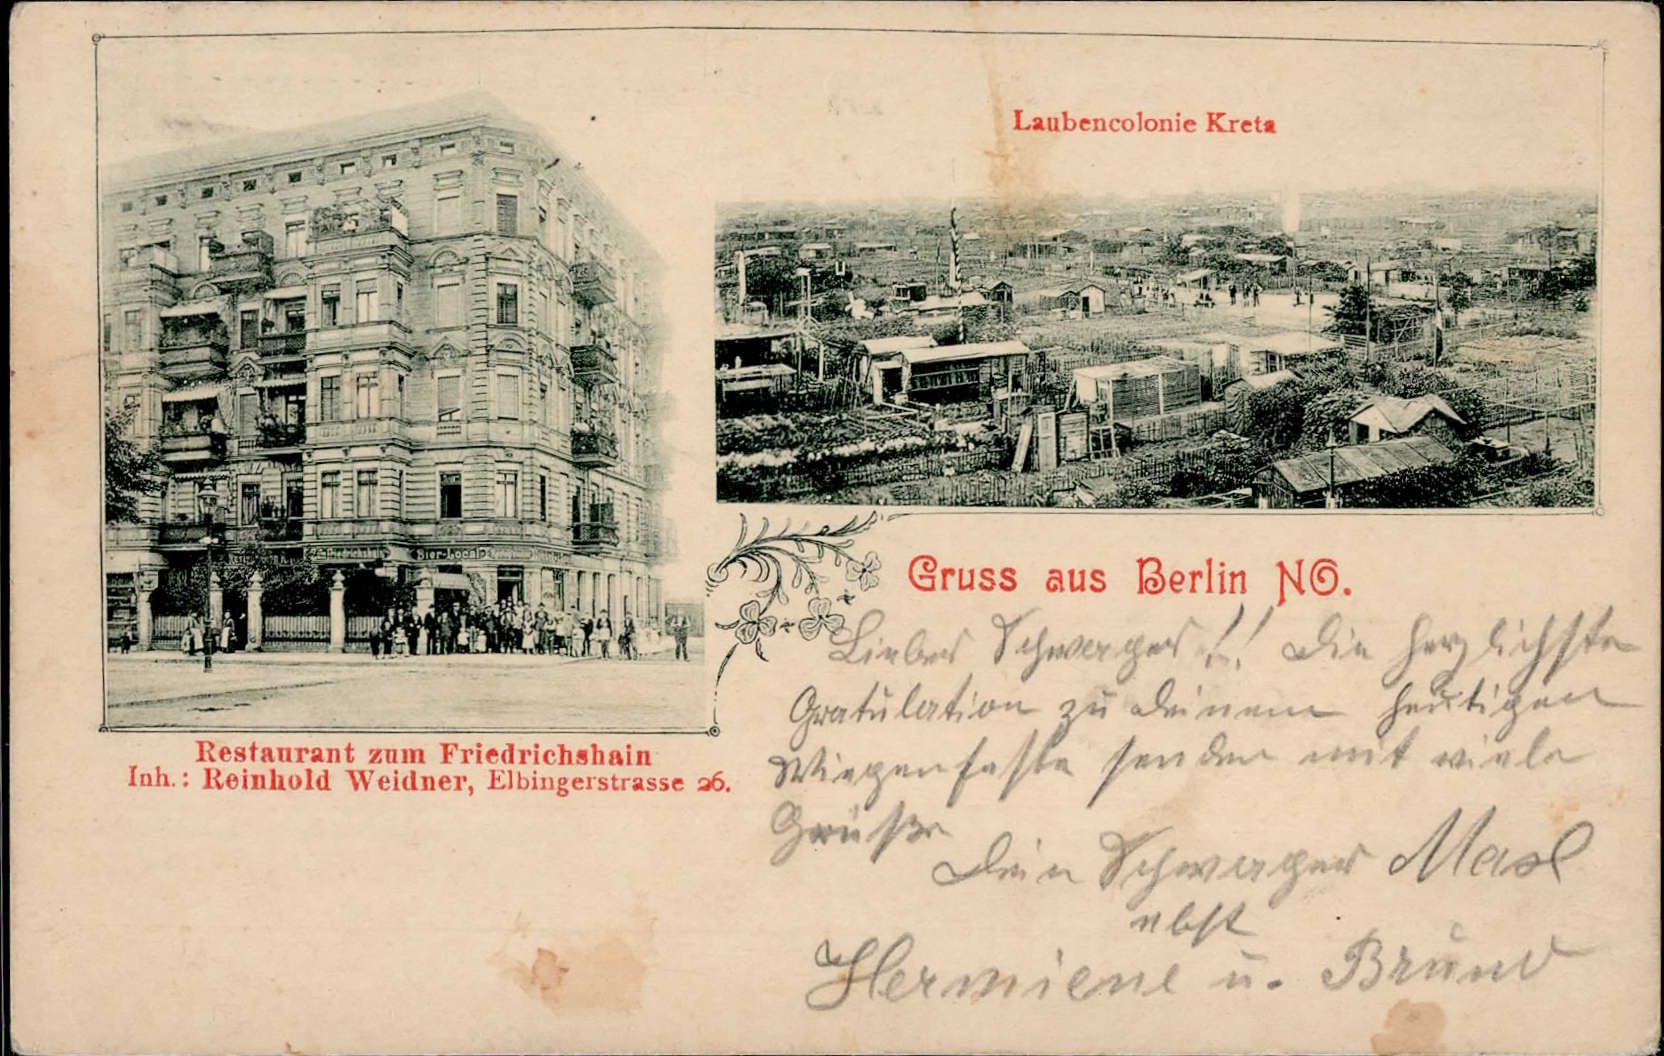 Laubencolonie Kreta
Friedrichshain Bier-Local
Gruss aus Berlin NO.
Restaurant zum Friedrichshain
Inh.: Reinhold Weidner, Elbingerstrasse 26.
Lieber Schwager!! Die herzlichste
Gratulation zu deinem heutigen
Wiegenfeste senden mit viele
Grüße
Dein Schwager
nebst
Hermiene u. Bruno